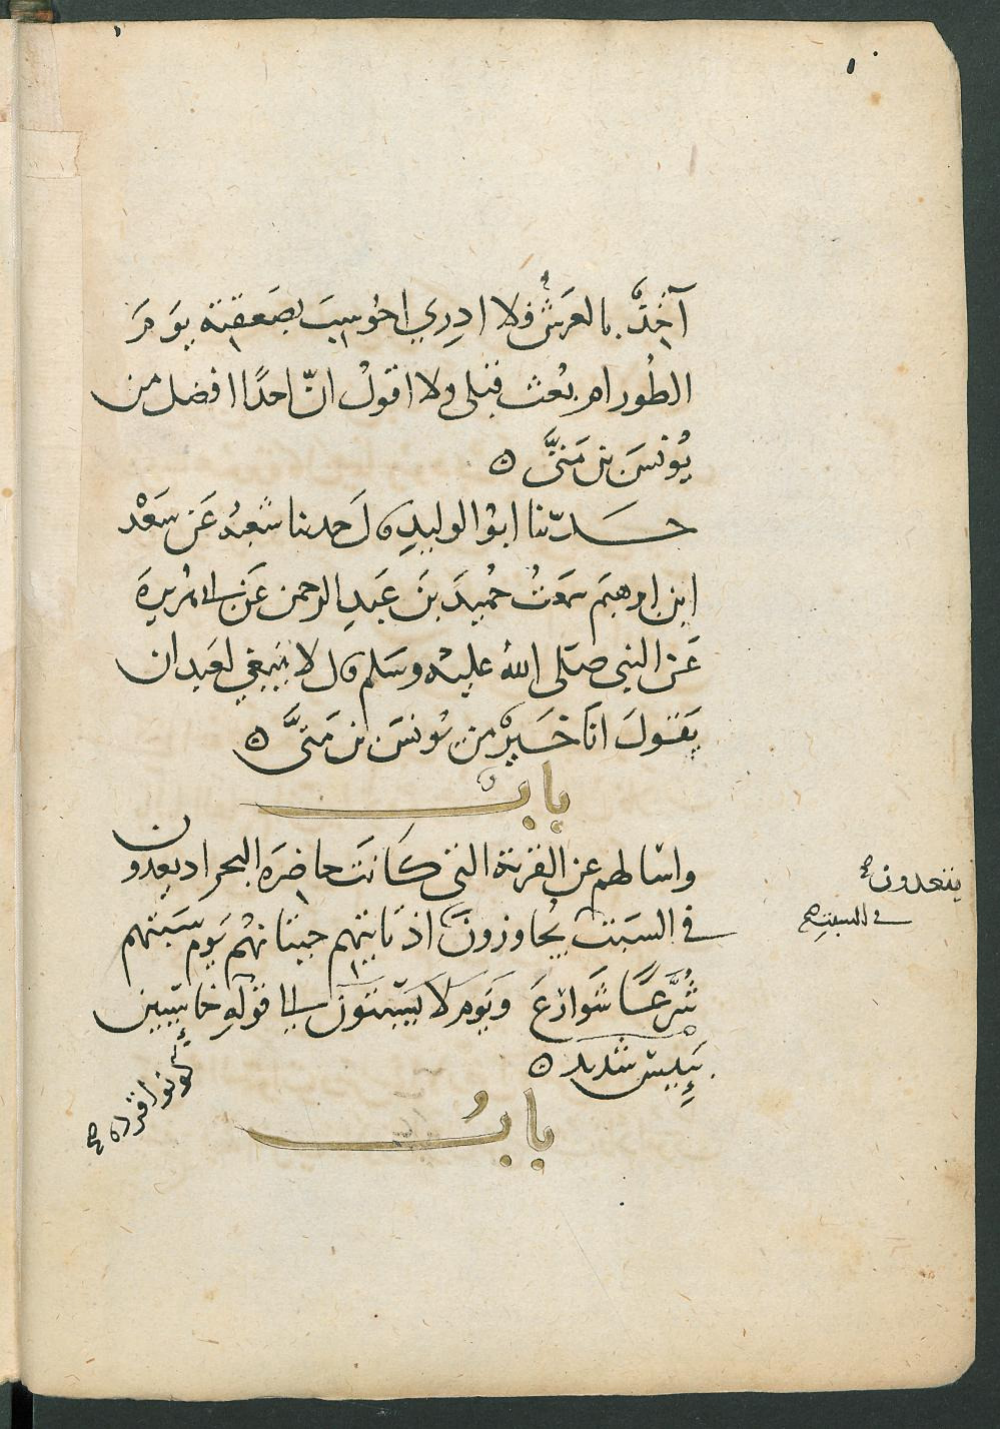 آخِذٌ بالعَرشِ فلا ادرِي احُوسِبَ بصَعقته يوَمَ
الطُور ام بُعث قبلى ولا اقولُ انّ احدًا افضل من
يُونُسَ بن مَتىَّ ه
حدّثنا ابوُ الوليدِ قال حدثنا شعبهُ عَن سَعْد
ابن ابرهيم سمعتُ حُميدَ بنَ عَبدِ الرحمن عَن ابي هُريرةَ
عَن النبي صَلى اللهُ عليه وسَلم قال لا ينبغي لعَبد ان
يَقولَ انا خَيرٌ من يُونسَ بن مَتىَّ ه
بابٌ
واسالهم عن القرية التي كانَت حاضرَه البحر اذ يعدون
يتعدون صح
في السَبت يُجاوزونَ اذ تاتيهم حيتانهُم يَوم سَبتهم
في السبت صح
شُرَّعًا شَوارَعَ ويَوم لا يَسبتونَ الى قولهِ خاسِيين
بَئِيس شديد ه
كونوا قردة صح
بابُ